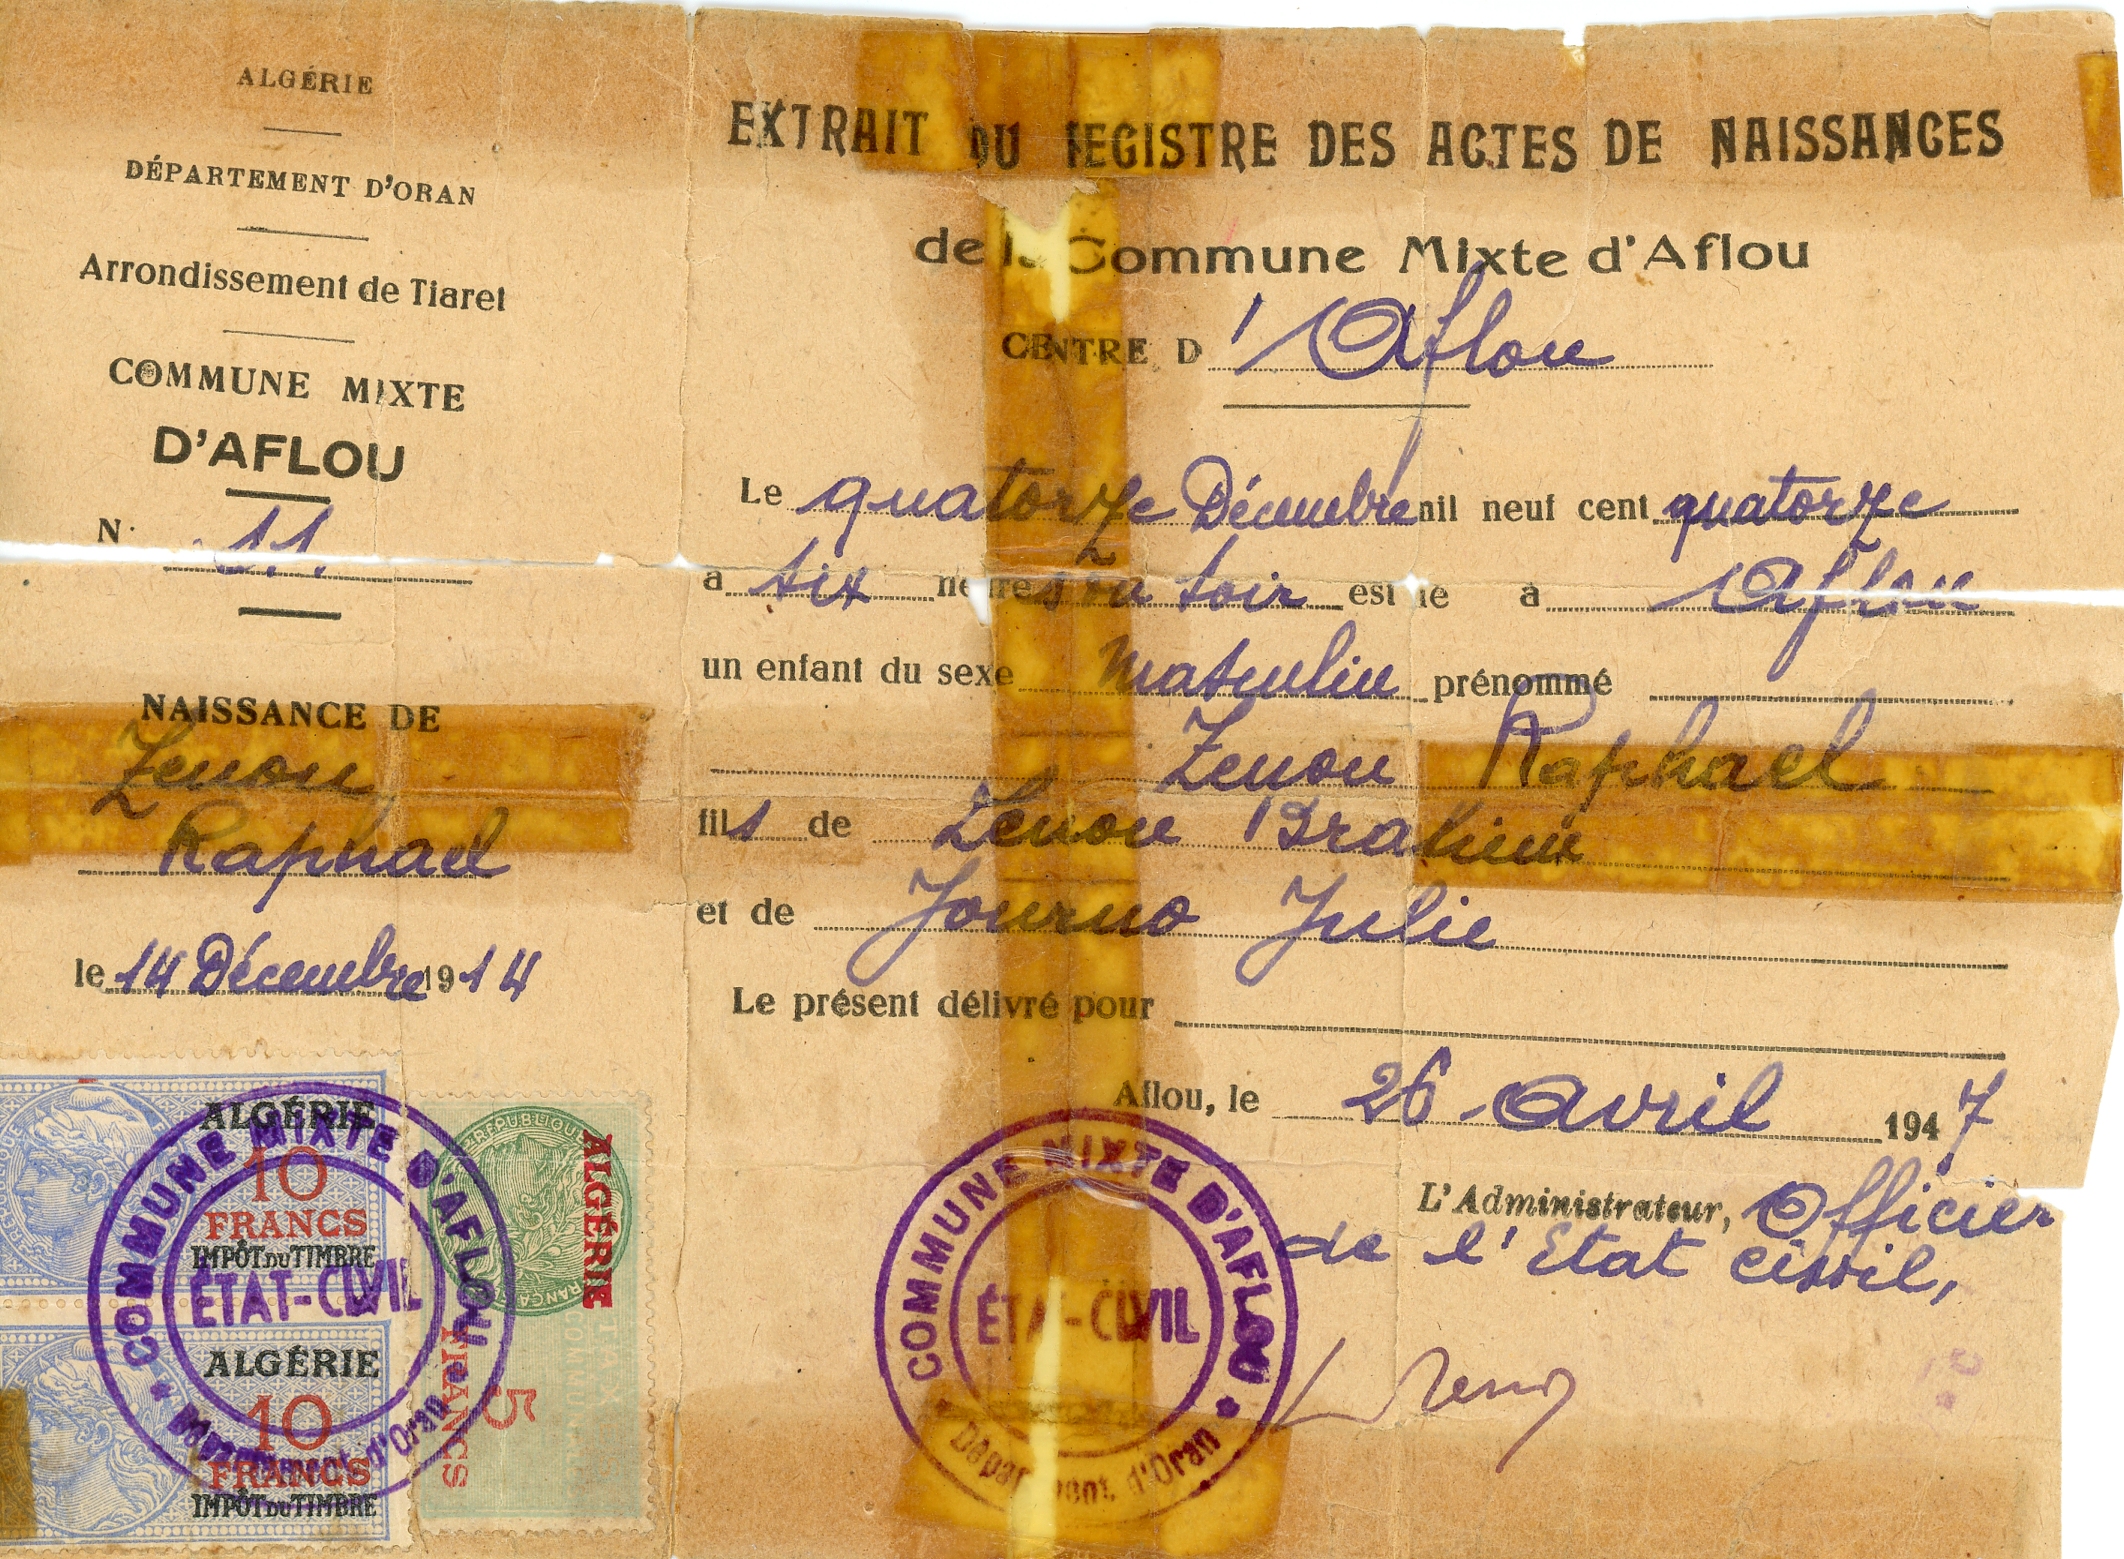 ALGÉRIE
DÉPARTEMENT D'ORAN
Arrondissement de Tiaret
COMMUNE MIXTE
D'AFLOU
N. 11
NAISSANCE DE
Zenou
Raphael
le 14 Décembre 1914
EXTRAIT DU REGISTRE DES ACTES DE NAISSANCES
de la Commune Mixte d'Aflou
CENTRE D'Aflou
Le quatorze Décembre mil neuf cent quatorze
à six heures du soir est né à Aflou
un enfant du sexe Masculin prénommé
Zenou Raphael
fils de Zenou Brahim
et de Journo Julie
Le présent délivré pour
Aflou, le 26 Avril 1947
L'Administrateur, Officier
de l'Etat civil,
ALGÉRIE
10
FRANCS
IMPÔT DU TIMBRE
ALGÉRIE
10
FRANCS
IMPÔT DU TIMBRE
RÉPUBLIQUE
ALGÉRIE
5
FRANCS
COMMUNE MIXTE D'AFLOU
ÉTAT-CIVIL
Département d'Oran
COMMUNE MIXTE D'AFLOU
ÉTAT-CIVIL
Département d'Oran